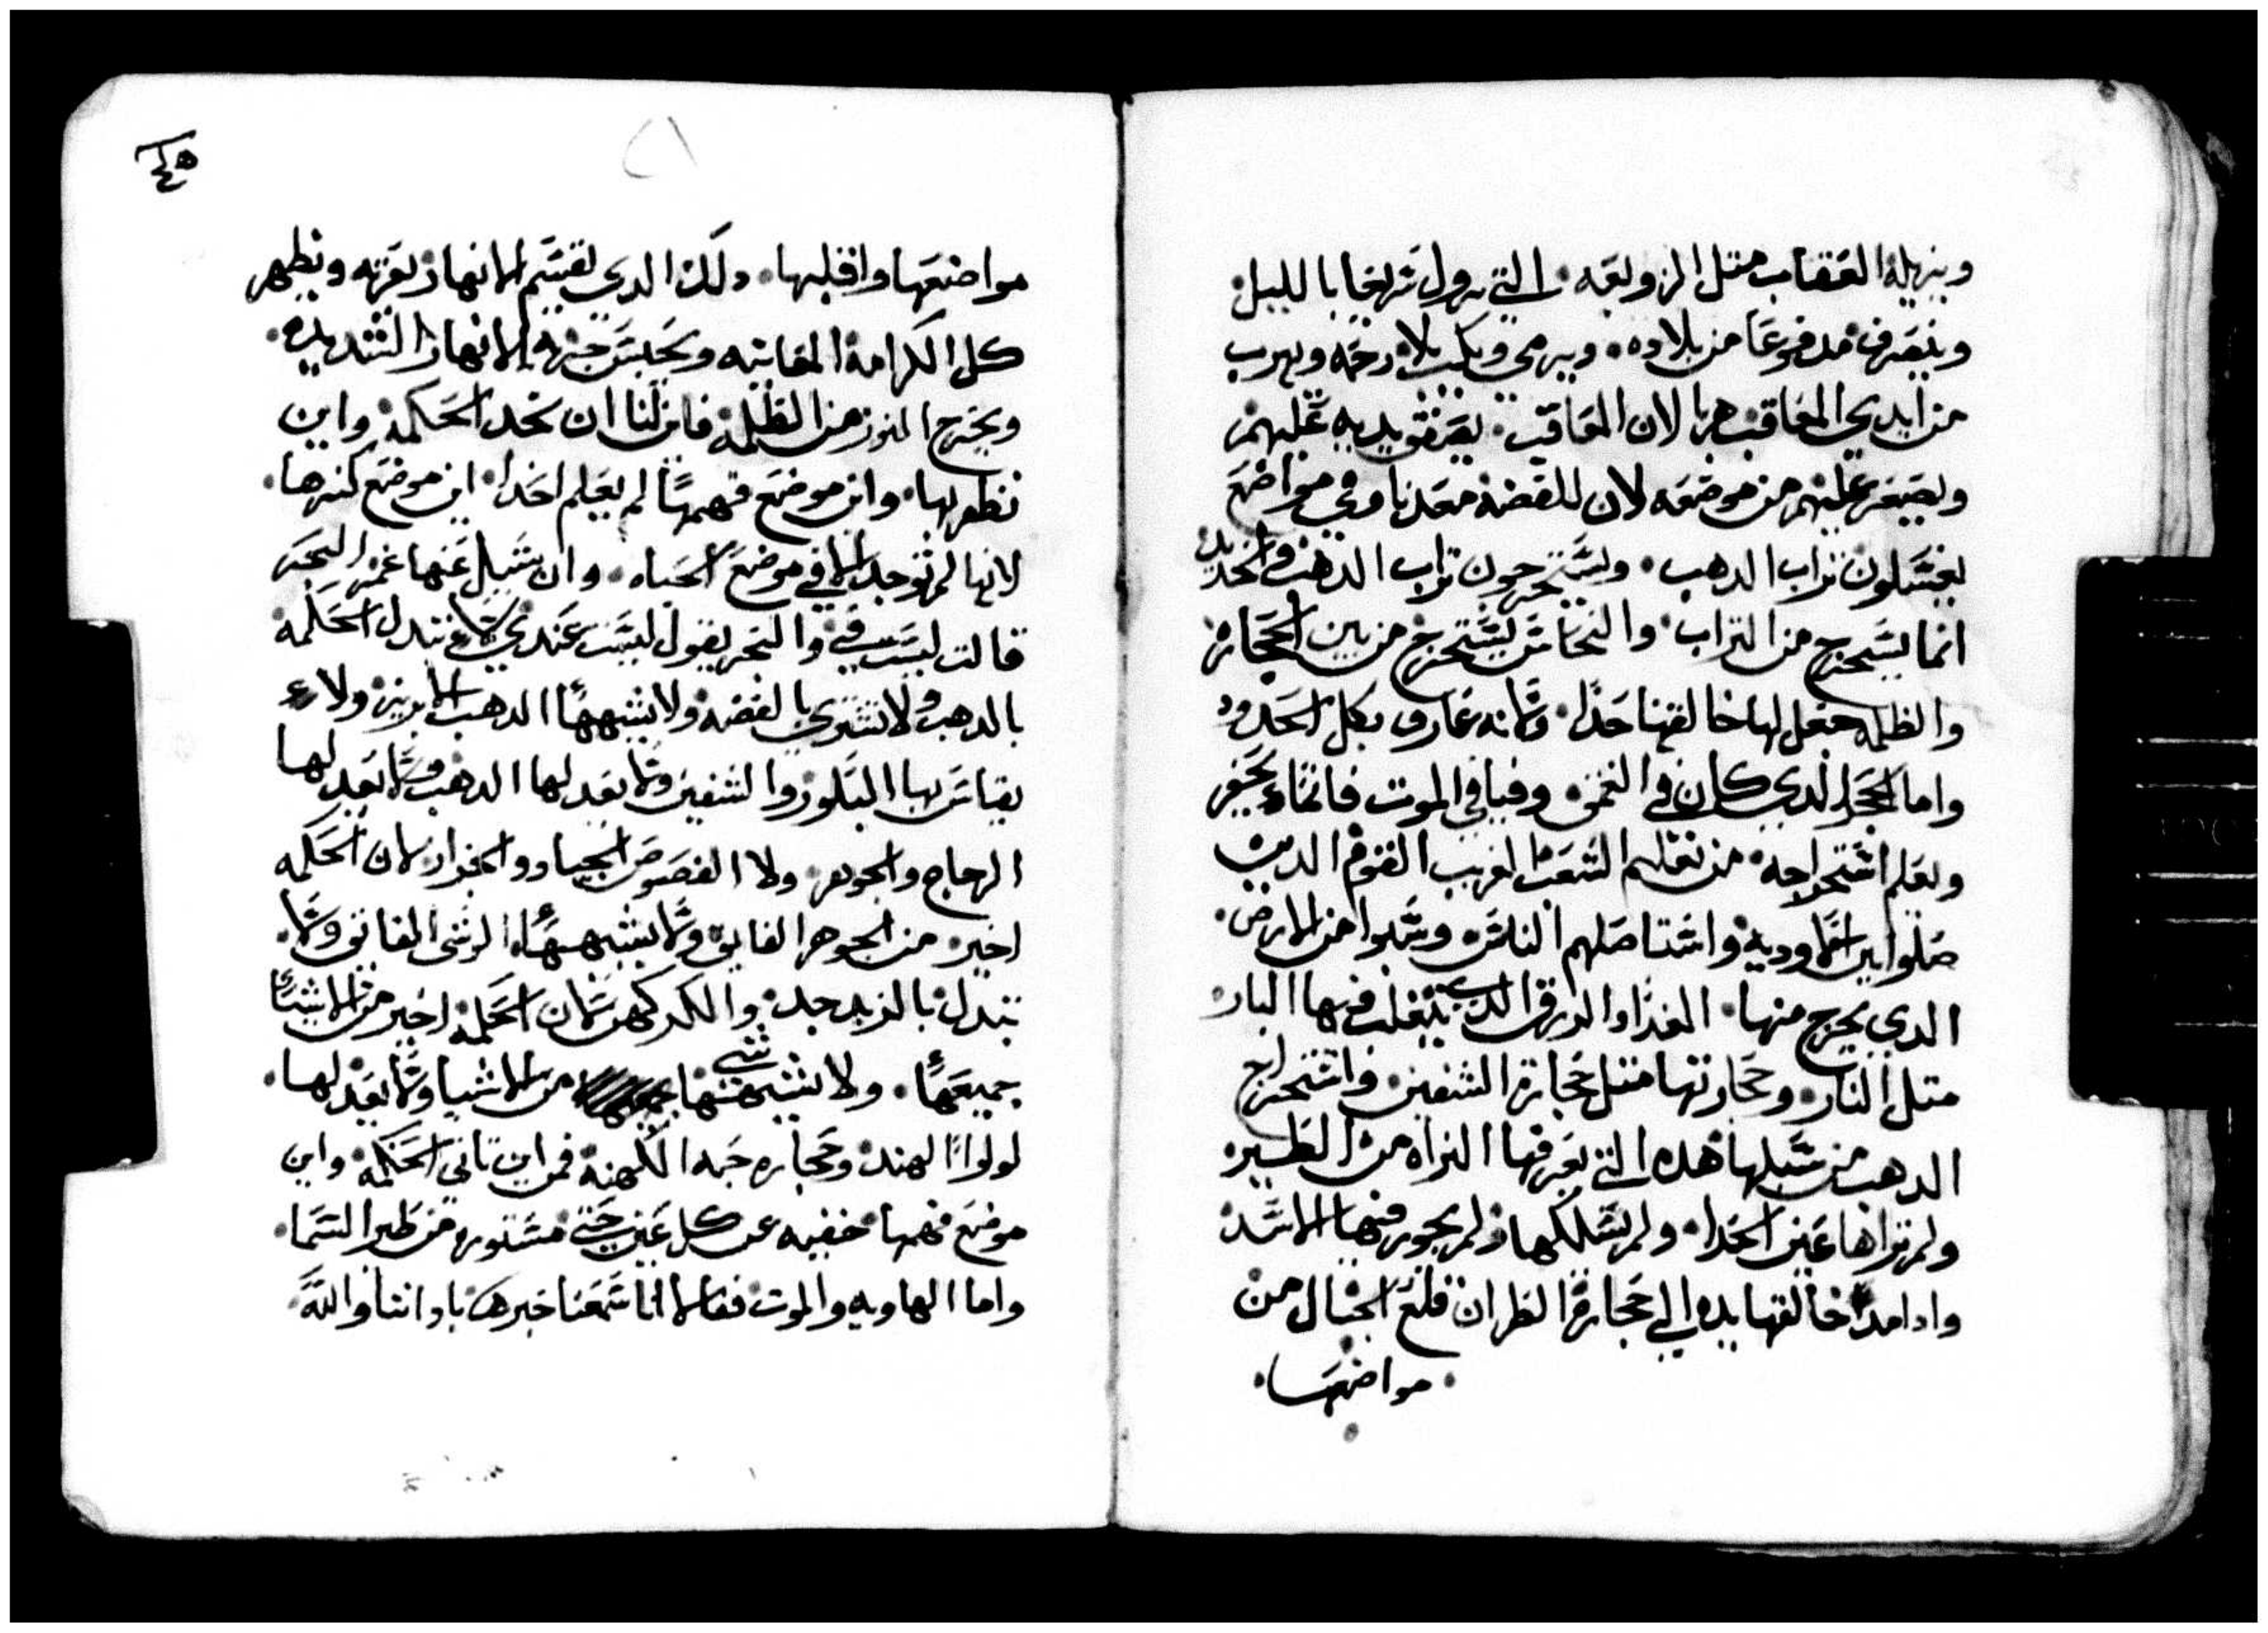 وينزيله العقاب متل الزوبعه التي تزول سريعا بالليل
وينصرف مدفوعا من بلاده ويرمي ويكب بلا رحمه ويهرب
من ايدي المعاقب هربا لان المعاقب يصفق يديه عليهم
ويصفر عليهم من موضعه لان للفضه معدنا وفي مواضع
يغسلون تراب الدهب ويستخرجون تراب الدهب والحديد
انما يستخرج من التراب والنحاس يستخرج من بين الحجاره
والظلمه جعل لها خالقها حدا لانه عارف بكل الحدود
واما الحجر الدي كان في الغمق وفيافي الموت فانما يحفر
ويعلم استخراجه من تقلهم الشعب الغريب القوم الدين
ضلوا بين الاوديه واستاصلهم الناس وسلبوا من الارض
الدي يخرج منها الغدا والرزق الدي ينقلب فيها البار
متل النار وحجارتها متل حجارة السفين واستخراج
الدهب من سبلها هده التي يعرفها البزاه من الطير
ولم تراها عين الحدا ولم يسلكها ولم يجوز فيها الاسد
وادا مد خالقها يده الي حجارة الظران قلع الجبال من
مواضعها
٤٥
٨
مواضعها واقلبها دلك الدي يقسم الانهار بعزته ويظهر
كل الكرامة الفانيه ويحبس جزيه الانهار الشديده
ويخرج النور من الظلمه فاين لنا ان نجد الحكمه واين
نظفر بها واين موضع فهمها لم يعلم احدا اين موضع كنزها
لانها لم توجد الا في موضع الحياه وان سيل عنها غمر البحر
قالت ليست في والبحر يقول ليست عندي لا تبدل الحكمه
بالدهب ولا تشتري بالفضه ولا يشبهها الدهب الابريز ولا
يقاس بها البلور والسفين ولا يعدلها الدهب ولا يعدلها
الزجاج والجوهر ولا الفصوص الجياد والجزار لان الحكمه
اخير من الجوهر الفايق ولا يشبهها الوشي الفايق ولا
تبدل بالزبرجد والكركهن لان الحكمه اخير من الاشيا
جميعها ولا يشبهها شي من الاشيا ولا يعدلها
لولوا الهند وحجاره جبه الكهنه فمن اين تاتي الحكمه واين
موضع فهمها خفيه عن كل عين حتي مستوره من طير السما
واما الهاويه والموت فقالا انا سمعنا خبرها بادانتا والله